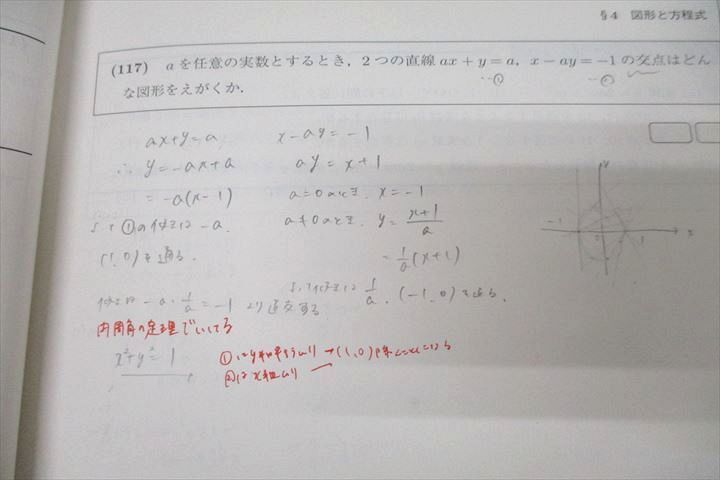 §4 図形と方程式
(117) aを任意の実数とするとき，2つの直線 ax + y = a, x − ay = −1 の交点はどん
…① …②
な図形をえがくか．
ax+y=a x-ay=-1
∴ y=-ax+a ay=x+1
=-a(x-1) a=0のとき、x=-1
よって①の傾きは -a. a≠0のとき、y=\frac{x+1}{a}
(1,0)を通る. =\frac{1}{a}(x+1)
傾き \frac{1}{a}, (-1,0)を通る.
-a・\frac{1}{a}=-1 より直交する
円周角の定理で
x²+y²=1
①はy軸平行 → (1,0)
②は
-1 0 1 x
y